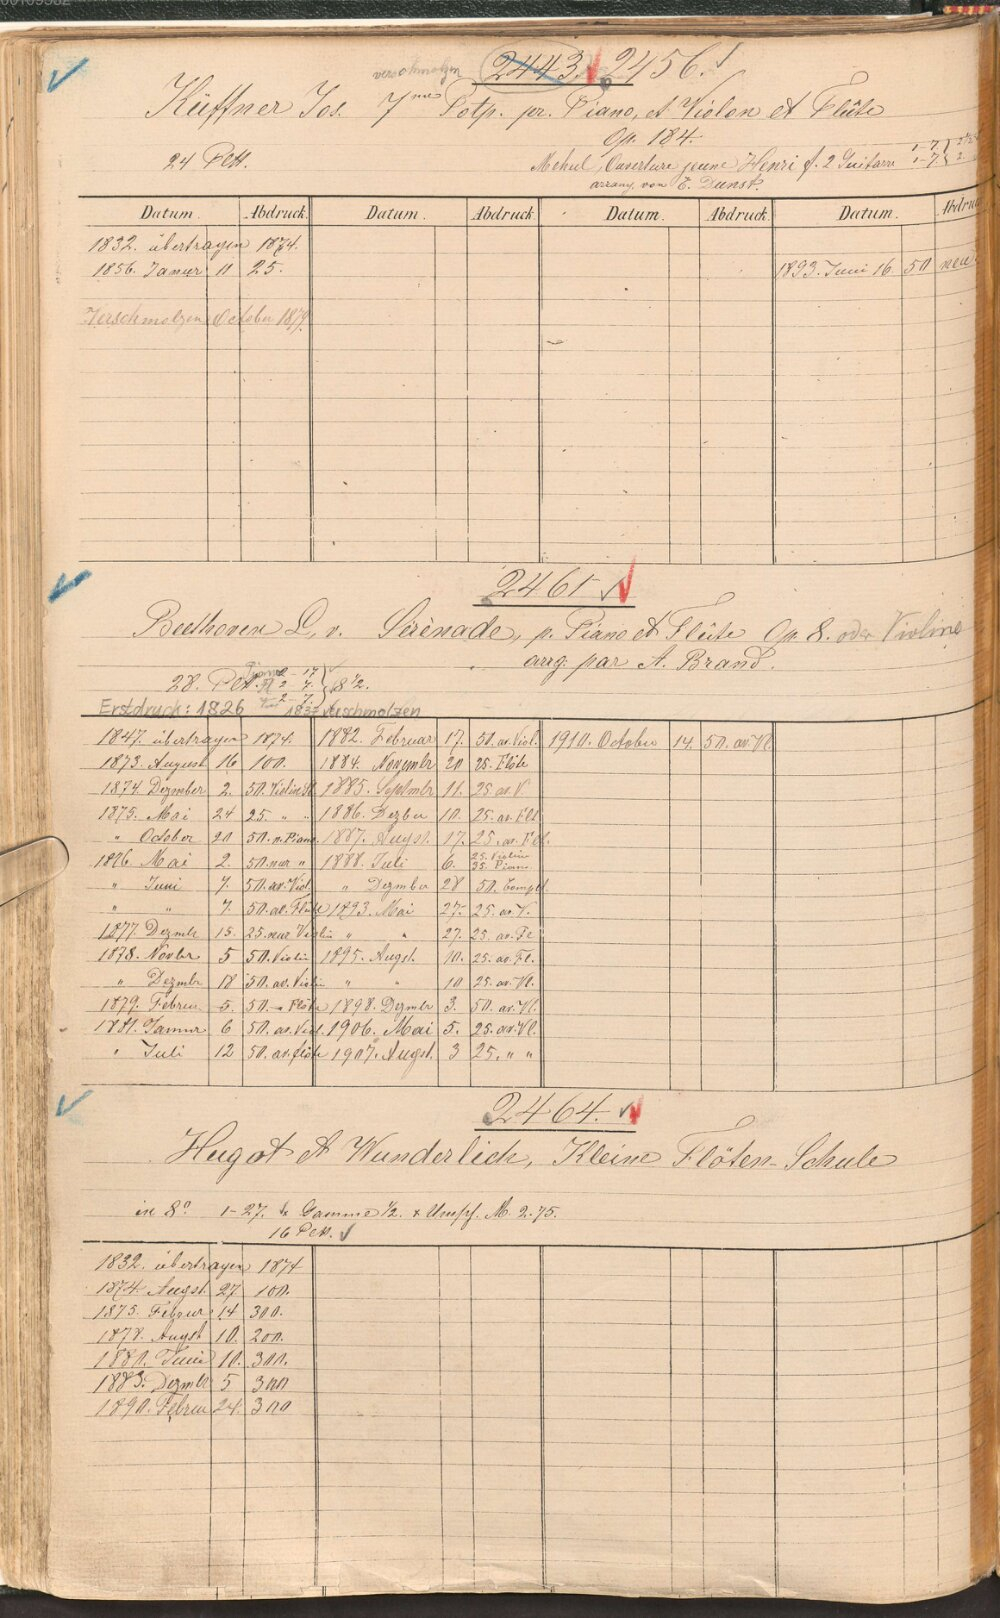 verschmolzen 2443. 2456.
Küffner Jos. 7me Potp. pr. Piano, et Violon et Flûte
Op. 184.
24 Plt. Mehul, Ouverture jeune Henri f. 2 Guitarre 1-7
arrang. von E. Dunst. 1-7
Datum. Abdruck. Datum. Abdruck. Datum. Abdruck. Datum. Abdruck
1832. übertragen 1874.
1856. Januar 11 25. 1893. Juni 16. 50 neu
Verschmolzen October 1879.
2461
Beethoven L. v. Serènade, p. Piano et Flûte Op 8. oder Violine
arrg. par A. Brand.
28. Plt. 2-17
2 7. 8 1/2.
2-7.
Erstdruck: 1826 verschmolzen
1847. übertragen 1874. 1882. Februar 17. 50. av. Viol. 1910. October 14. 50. av. Vl
1873. August 16 100. 1884. Novembr 20 25. Flöte
1874. Dezmber 2. 50. Violin St. 1885. Septmbr 11. 25 av. V
1875. Mai 24 25. " " 1886. Dezber 10. 25. av. Flt
" October 20 50. n. Piano 1887. Augst. 17. 25. av. Fl.
1876. Mai 2. 50. nur " 1888. Juli 6. 25. Violine 35. Piano
" Juni 7. 50. av. Viol. " Dezmber 28 50. Compl.
" " 7. 50. av. Flöte 1893. Mai 27. 25. av. V.
1877. Dezmbr 15. 25. nur Violin " " 27. 25. av. Fl
1878. Novbr 5 50. Violin 1895. Augst. 10. 25. av. Fl.
" Dezmbr 18 50. av. Violin " " 10 25. av. Vl.
1879. Februar 5. 50. " Flöte 1898. Dezmbr 3. 50. av. Vl.
1881. Januar 6 50. av. Viol. 1906. Mai 5. 25. av. Vl.
" Juli 12 50. av. flöte 1907. Augst. 3 25. " "
2464.
Hugot et Wunderlich, Kleine Flöten-Schule
in 8o 1-27. & Gamme 1/2. & Umschl. M. 2.75.
16 Plt.
1832. übertragen 1874
1874. Augst 27 100.
1875. Februar 14 300.
1878. Augst 10. 200.
1880. Juni 10. 300.
1883. Dezmbr 5 300
1890. Februar 24. 300